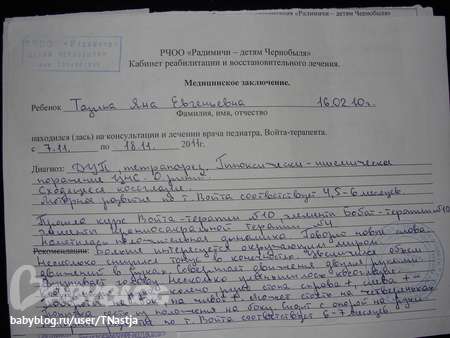 РЧОО «Радимичи – детям Чернобыля»
Кабинет реабилитации и восстановительного лечения.
Медицинское заключение.
Ребенок Яна Евгеньевна 16.02.10г.
Фамилия, имя, отчество
находился (лась) на консультации и лечении врача педиатра, Войта-терапевта.
с 7.11. по 18.11. 2011г.
Диагноз: ДЦП, тетрапарез. Гипоксически-ишемическое
поражение ЦНС.
Сходящееся косоглазие.
Моторное развитие по т. Войта соответствует 4,5-6 месяцев.
Прошла курс Войта-терапии №10, элементы Бобат-терапии №10
элементы краниосакральной терапии №4
положительная динамика. Говорит новые слова.
Рекомендации: Больше интересуется окружающим миром.
Несколько снизился тонус в конечностях. Увеличился объем
движений в руках. Совершает движения двумя руками.
голову. Несколько уменьшилось косоглазие.
стопа справа +, слева + -
на живот. Может стоять на четвереньках
на боку. Сидит с опорой на руки
по т. Войта соответствует 6-7 месяцев.
babyblog.ru/user/TNastja